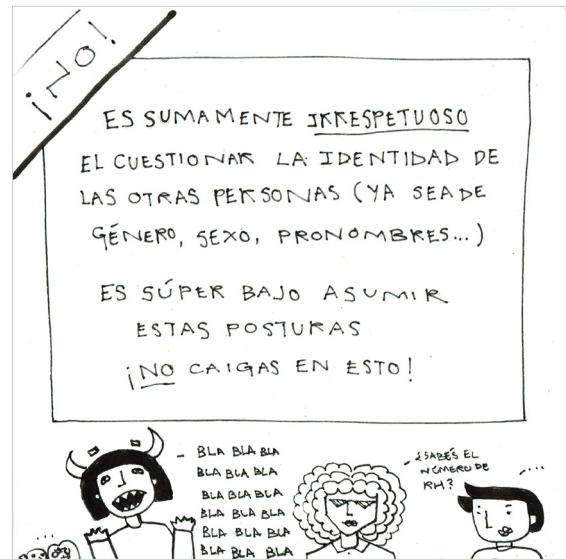 ¡NO!
ES SUMAMENTE IRRESPETUOSO
EL CUESTIONAR LA IDENTIDAD DE
LAS OTRAS PERSONAS (YA SEA DE
GÉNERO, SEXO, PRONOMBRES...)
ES SÚPER BAJO ASUMIR
ESTAS POSTURAS
¡NO CAIGAS EN ESTO!
- BLA BLA BLA
BLA BLA BLA
BLA BLA BLA
BLA BLA BLA
BLA BLA BLA
BLA BLA BLA
- ¿SABES EL
NÚMERO DE
RH?
...
...